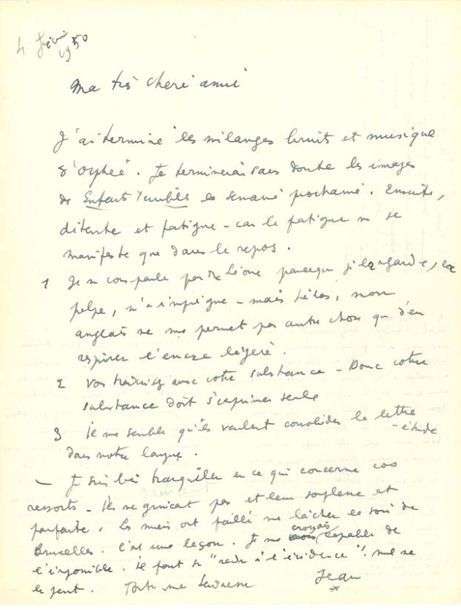 4 févr
1950
Ma très chère amie
J'ai terminé les mélanges bruits et musique
d'Orphée. Je terminerai sans doute les images
de Enfants Terribles la semaine prochaine. Ensuite,
détente et fatigue – car la fatigue ne se
manifeste que dans le repos.
1 Je ne vous parle pas de parce que je le garde, le
palpe, m'en imprègne – mais hélas, mon
anglais ne me permet pas autre chose que d'en
respirer l'encre légère.
2 Vous avec votre substance – Donc votre
substance doit s'exprimer seule
3 Il me semble qu'ils veulent consolider la lettre
– étude
dans notre langue.
– Je suis bien tranquille en ce qui concerne vos
ressorts – Ils ne grincent pas et leur souplesse est
parfaite. Les miens ont failli me lâcher le soir de
Bruxelles. C'est une leçon. Je me croyais capable de
l'impossible. Il faut se "rendre à l'évidence". Mal
le peut. Votre Jean